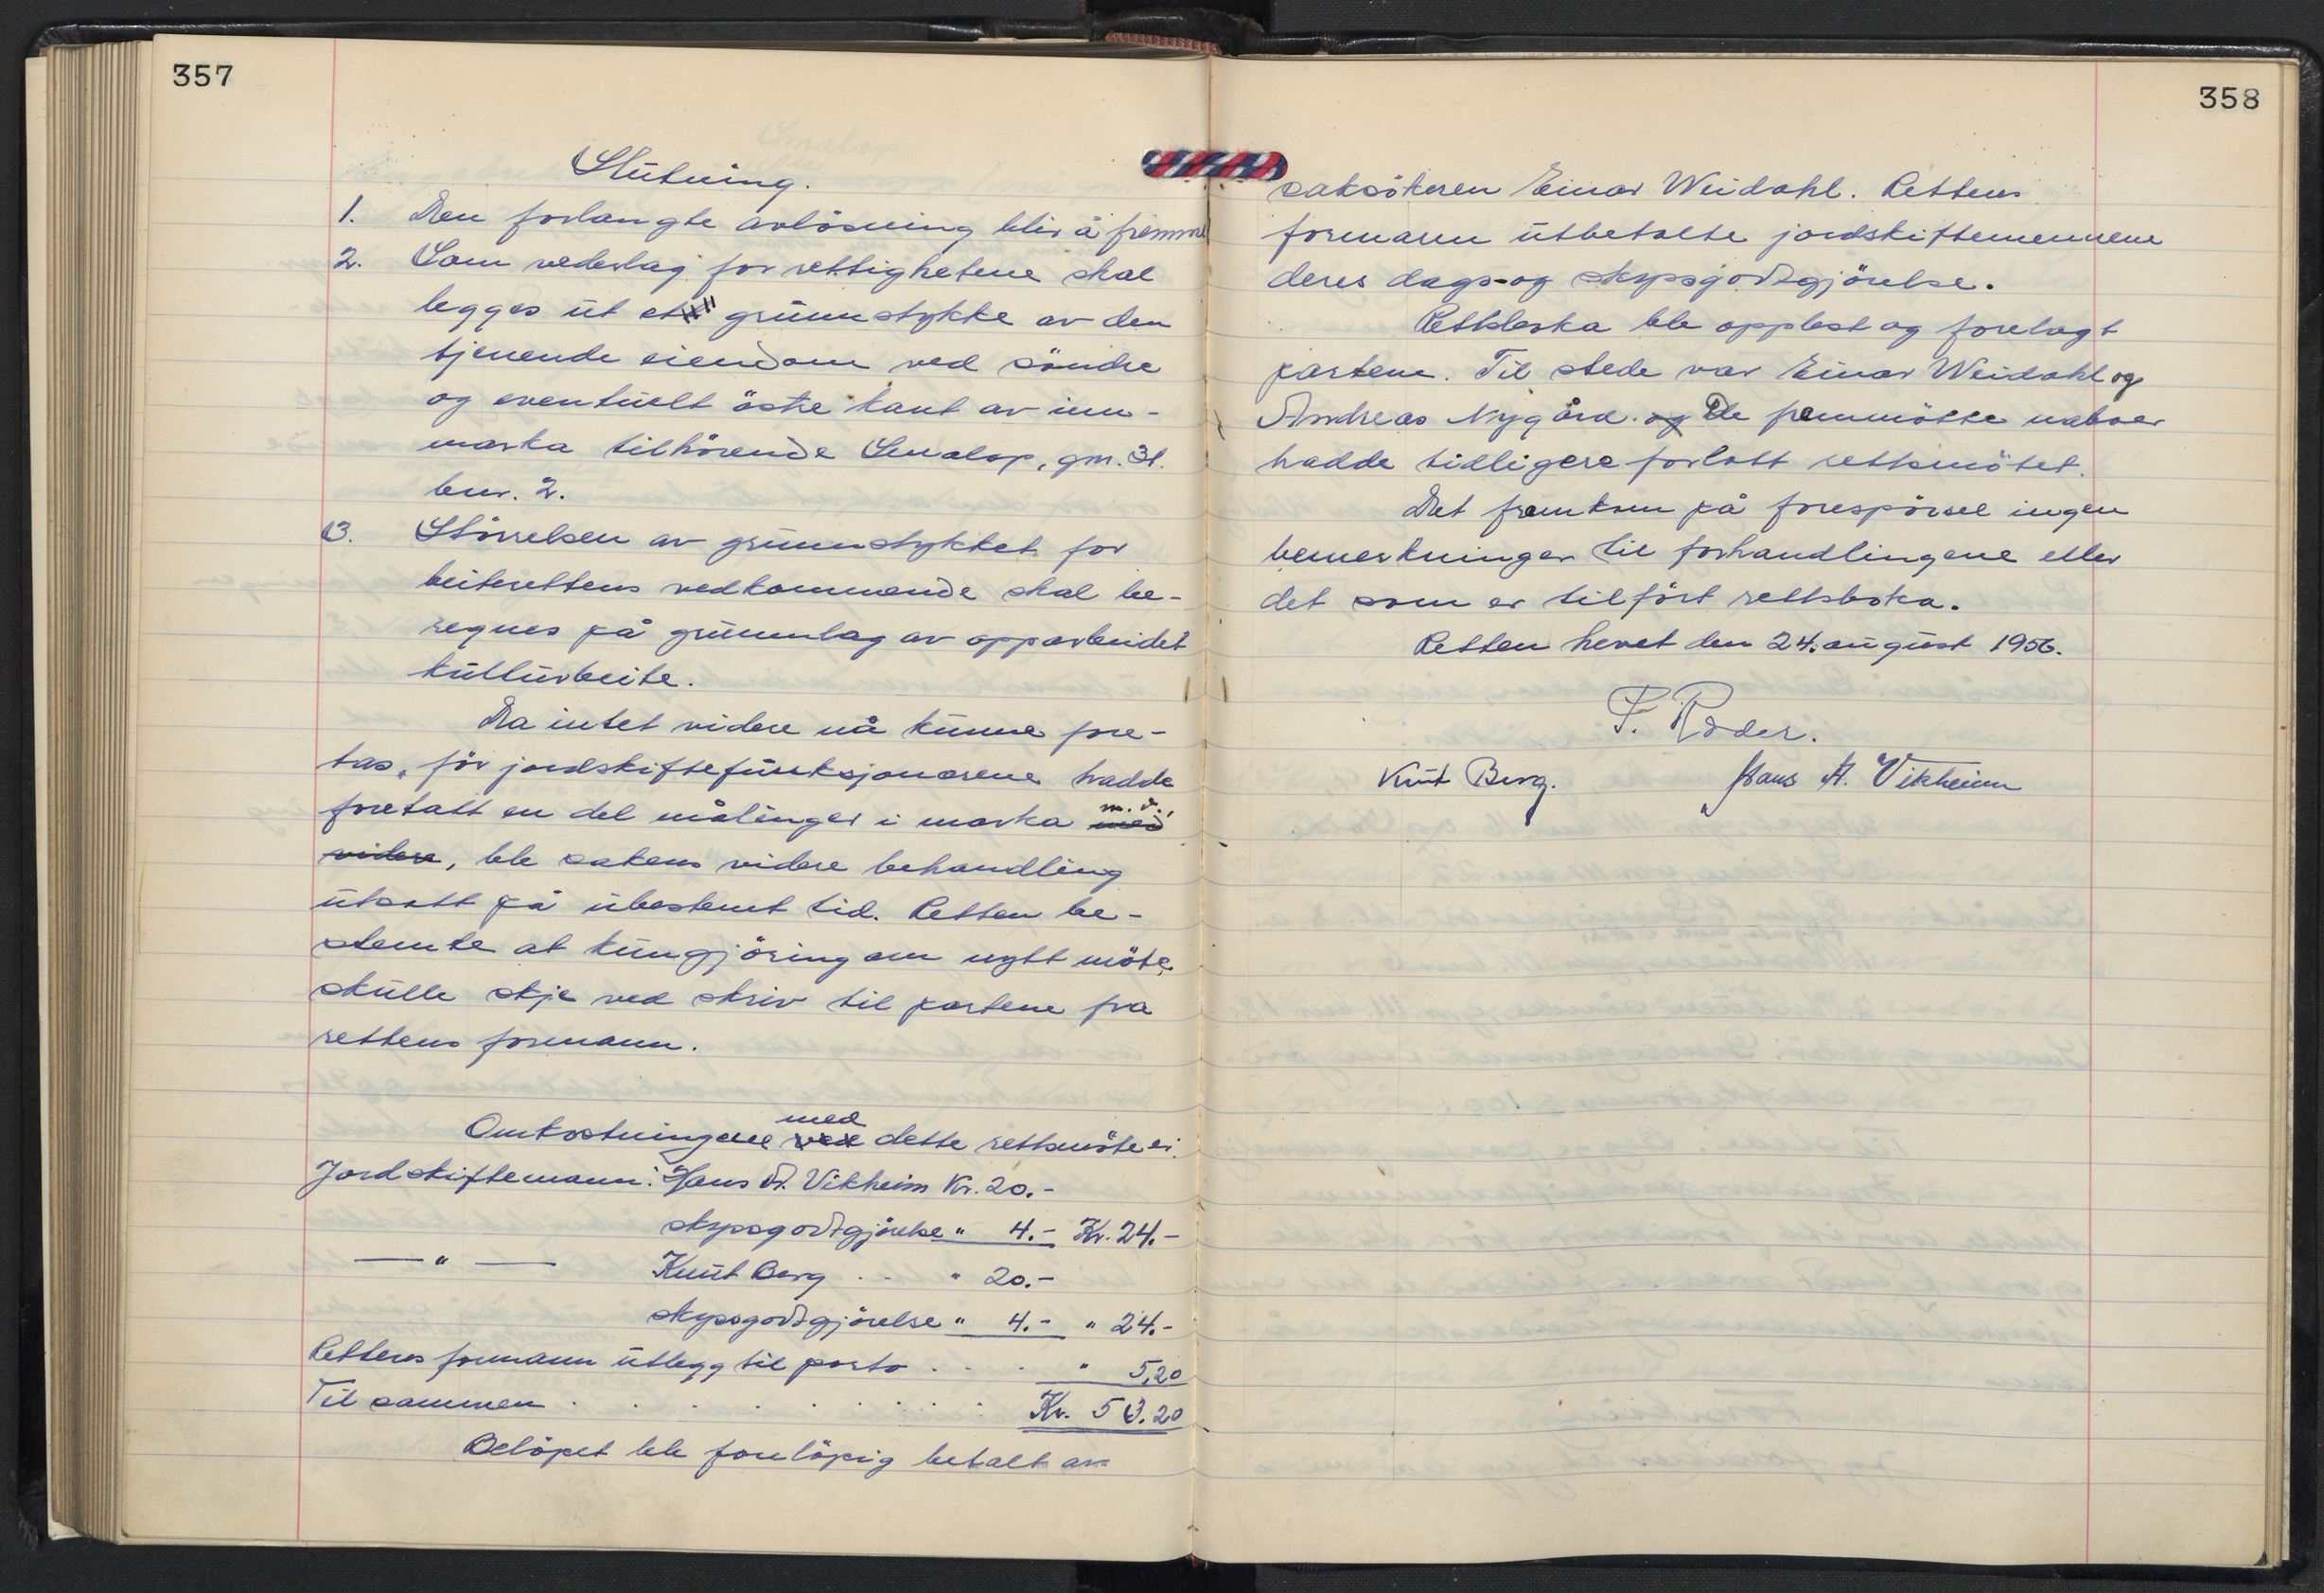 357
Slutning.
1. Den forlangte avlösning blir å fremme
2. Som vederlag for rettighetene skal
legges ut et grunnstykke av den
tjenende eiendom ved söndre
og eventuelt östre kant av inn-
marka tilhörende Smalop, gnr. 31.
bnr. 2.
3. Störrelsen av grunnstykket for
beiterettens vedkommende skal be-
regnes på grunnlag av opparbeidet
kulturbeite.
Da intet videre nå kunne fore-
tas, för jordskiftefunksjonærene hadde
foretatt en del målinger i marka med m. v.
videre, ble sakens videre behandling
utsatt på ubestemt tid. Retten be-
stemte at kungjöring om nytt möte
skulle skje ved skriv til partene fra
rettens formann.
Omkostningene ved med dette rettsmöte er:
Jordskiftemann: Hans A. Vikheim Kr. 20.-
skyssgodtgjörelse " 4.- Kr. 24.-
— " — Knut Berg . . " 20.-
skyssgodtgjörelse " 4.- " 24.-
Rettens formann utlegg til porto . . . " 5,20
Til sammen . . . . . . . . Kr. 53.20
Belöpet ble foreløpig betalt av
358
saksökeren Einar Weidahl. Rettens
formann utbetalte jordskiftemennene
deres dags- og skyssgodtgjörelse.
Rettsboka ble opplest og forelagt
partene. Til stede var Einar Weidahl og
Andreas Nygård. og De fremmötte naboer
hadde tidligere forlatt rettsmötet.
Det framkom på forespörsel ingen
bemerkninger til forhandlingene eller
det som er tilfört rettsboka.
Retten hevet den 24. august 1956.
F. Röder.
Knut Berg. Hans A. Vikheim